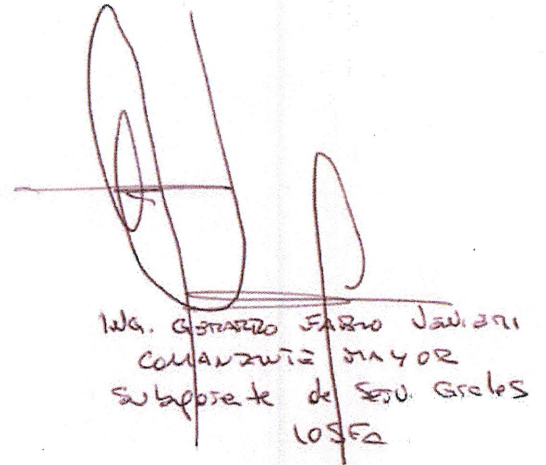 ING. GERARDO FABIO
COMANDANTE MAYOR
Subgerente de Serv. Grales
IOSFA